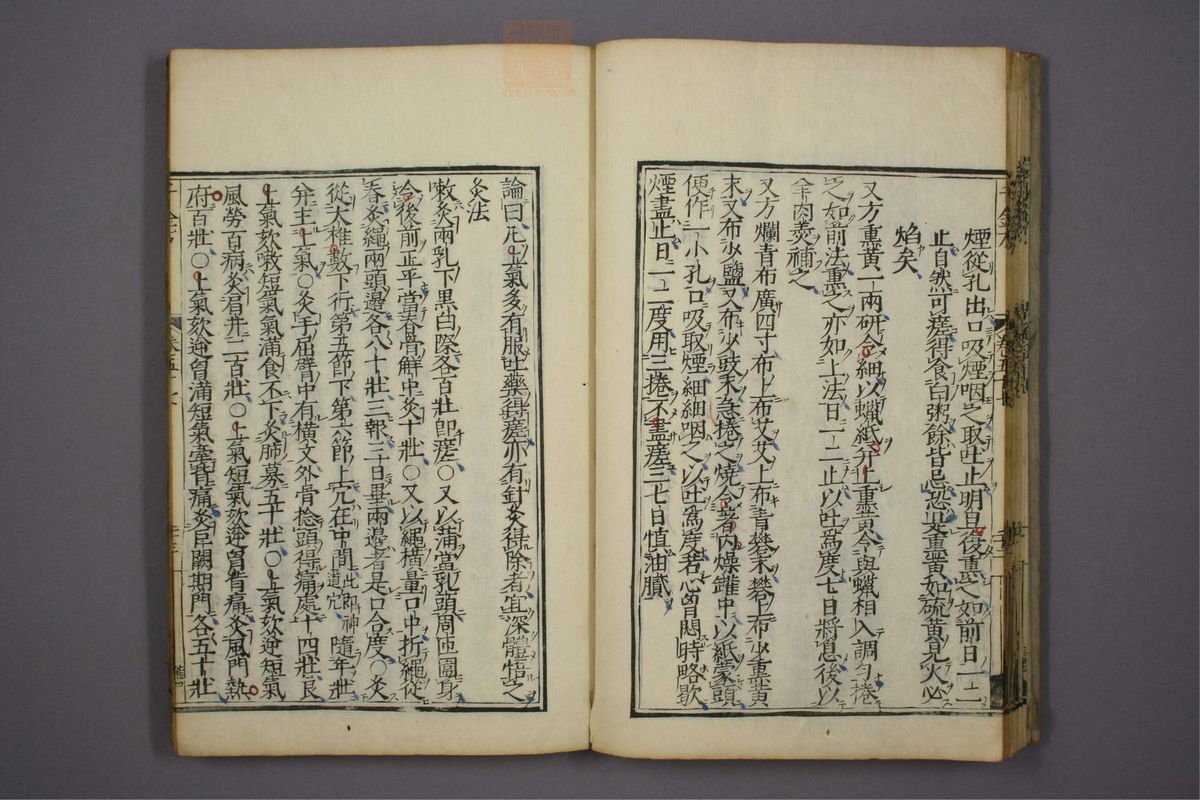 煙從孔出口吸煙咽之取吐止明旦後熏之如前日一二
止自然可瘥得食白粥餘皆忌恐是熏黃如硫黃見火必
焰矣
又方熏黃一兩研令細以蠟紙并上熏黃令與蠟相入調勻捲
之如前法熏之亦如上法日一二止以吐爲度七日將息後以
羊肉羹補之
又方爛青布廣四寸布上布艾艾上布青礬末礬上布少熏黃
末又布少鹽又布少豉末急捲之燒令著內燥罐中以紙蒙頭
便作一小孔口吸取煙細細咽之以吐爲度若心胷悶時略歇
煙盡止日一二度用三捲不盡瘥三七日慎油膩
論曰凡上氣多有服吐藥得瘥亦有針灸得除者宜深體悟之
灸法
嗽灸兩乳下黑白際各百壯即瘥○又以蒲當乳頭周匝圍身
令後前正平當脊骨解中灸十壯○又以繩橫量口中折繩從
脊灸繩兩頭邊各八十壯三報三日畢兩邊者是口合度○灸
從大椎數下行第五節下第六節上穴在中間此即神道穴隨年壯
并主上氣○灸手屈臂中有橫文外骨捻頭得痛處十四壯良
上氣欬嗽短氣氣滿食不下灸肺募五十壯○上氣欬逆短氣
風勞百病灸肩井二百壯○上氣短氣欬逆胷背痛灸風門熱
府百壯○上氣欬逆胷滿短氣牽背痛灸巨闕期門各五十壯